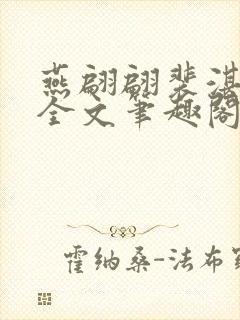 燕翩翩裴湛
全文筆趣閣
霍纳桑-法布